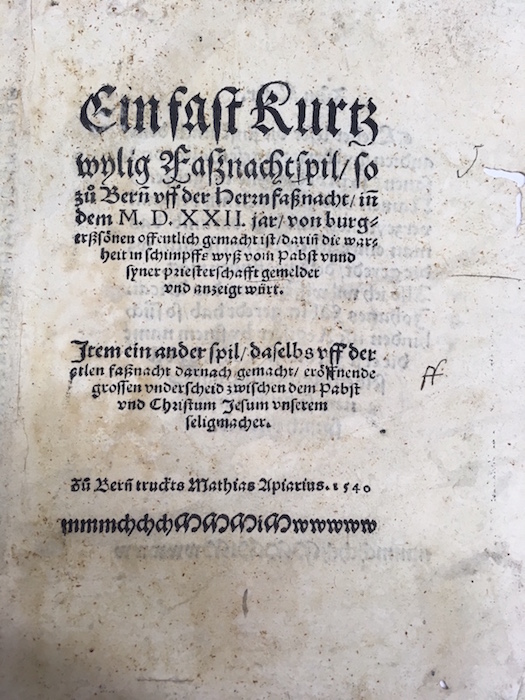 Ein fast Kurtz
wylig Faßnachtspil/ so
zů Bern̄ vff der Herrn faßnacht/ in̄
dem M. D. XXII. jar/ von burg⸗
erßsönen offentlich gemacht ist/ darin̄ die war⸗
heit in schimpffs wyß vom Pabst vnnd
syner priesterschafft gemeldet
vnd anzeigt würt.
Item ein ander spil/ daselbs vff der
alten faßnacht darnach gemacht/ eröffnende
grossen vnderscheid zwischen dem Pabst
vnd Christum Jesum vnserem
seligmacher.
Zů Bern̄ truckts Mathias Apiarius. 1540